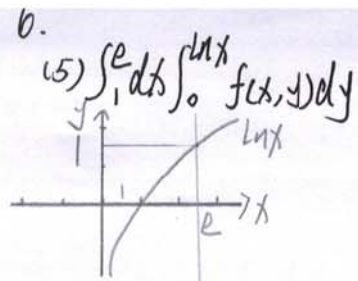 6.
(5) ∫₁ᵉ dx ∫₀^{lnx} f(x,y)dy
y
1
lnx
1
x
e